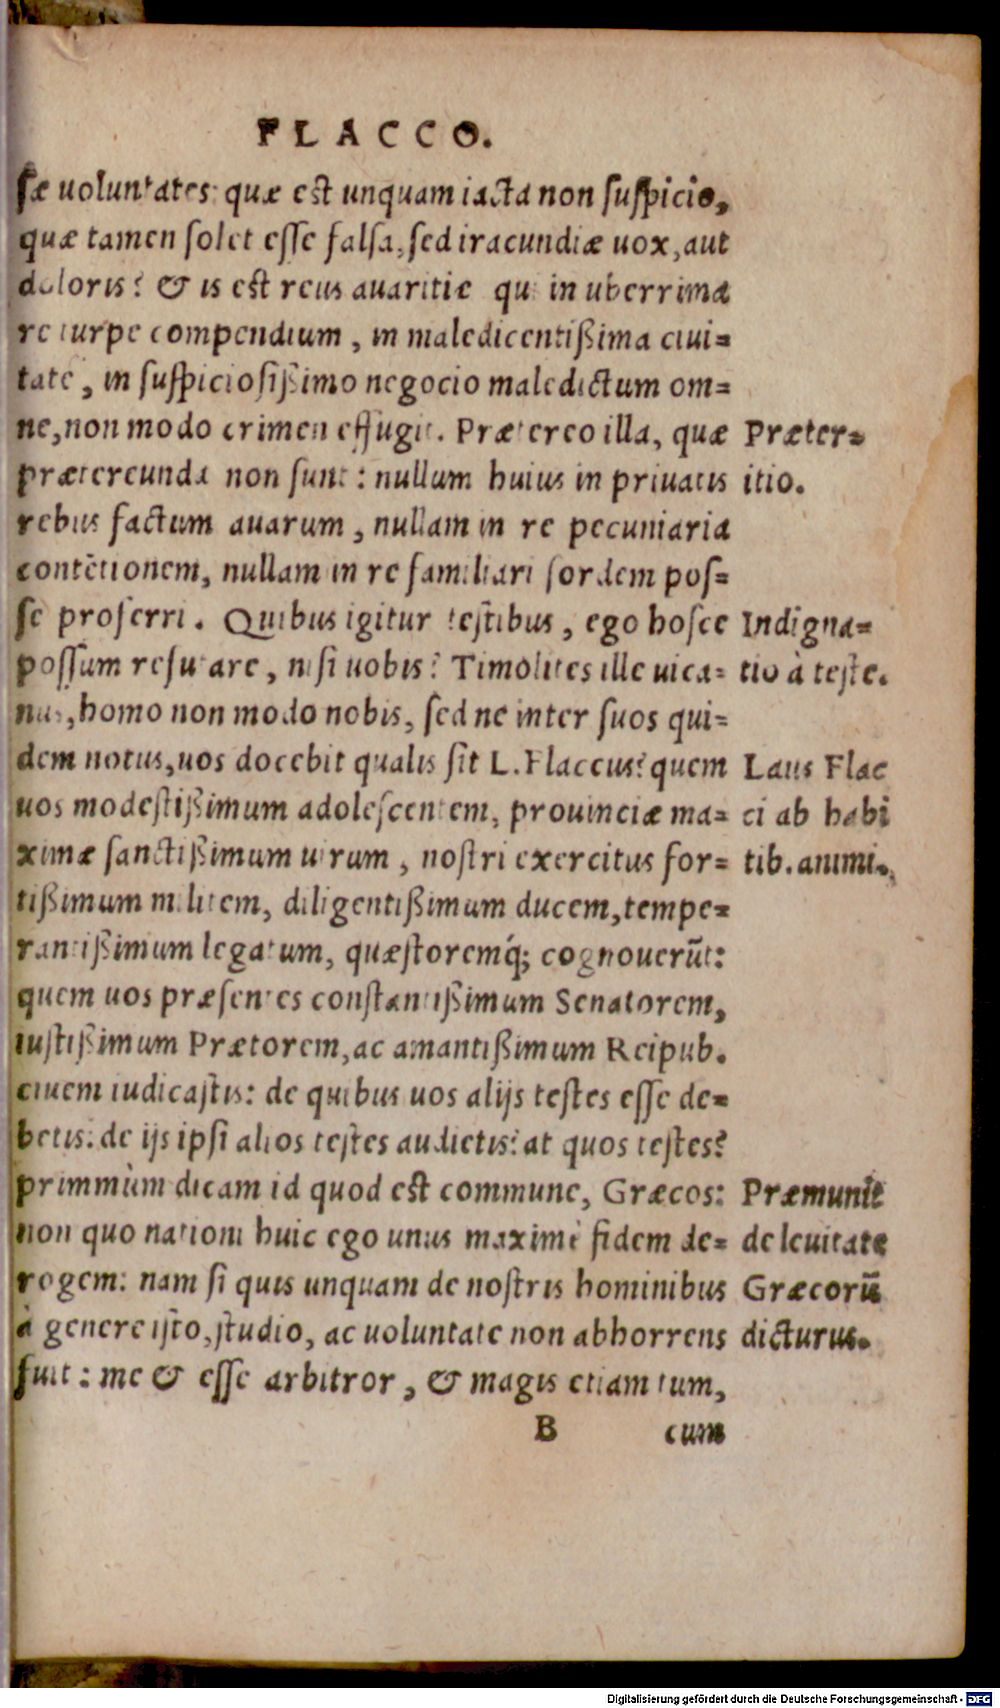 FLACCO.
sæ uoluntates: quæ est unquam iacta non suspicio,
quæ tamen solet esse falsa, sed iracundiæ uox, aut
doloris? & is est reus auaritie qui in uberrima
re turpe compendium, in maledicentißima ciui=
tate, in suspiciosißimo negocio maledictum om=
ne, non modo crimen effugit. Prætereo illa, quæ
prætereunda non sunt: nullum huius in priuatis
rebus factum auarum, nullam in re pecuniaria
contẽtionem, nullam in re familiari sordem pos=
se proferri. Quibus igitur testibus, ego hosce
possum refutare, nisi uobis? Timolites ille uica=
nus, homo non modo nobis, sed ne inter suos qui=
dem notus, uos docebit qualis sit L. Flaccus? quem
uos modestißimum adolescentem, prouinciæ ma=
ximæ sanctißimum uirum, nostri exercitus for=
tißimum militem, diligentißimum ducem, tempe=
rantißimum legatum, quæstoremq́; cognouerũt:
quem uos præsentes constantißimum Senatorem,
iustißimum Prætorem, ac amantißimum Reipub.
ciuem iudicastis: de quibus uos alijs testes esse de=
betis: de ijs ipsi alios testes audietis? at quos testes?
primmùm dicam id quod est commune, Græcos:
non quo nationi huic ego unus maximè fidem de=
rogem: nam si quis unquam de nostris hominibus
à genere isto, studio, ac uoluntate non abhorrens
fuit: me & esse arbitror, & magis etiam tum,
B cum
Præter=
itio.
Indigna=
tio à teste.
Laus Flac
ci ab habi
tib. animi.
Præmunit
de leuitate
Græcorũ
dicturus.
Digitalisierung gefördert durch die Deutsche Forschungsgemeinschaft - DFG